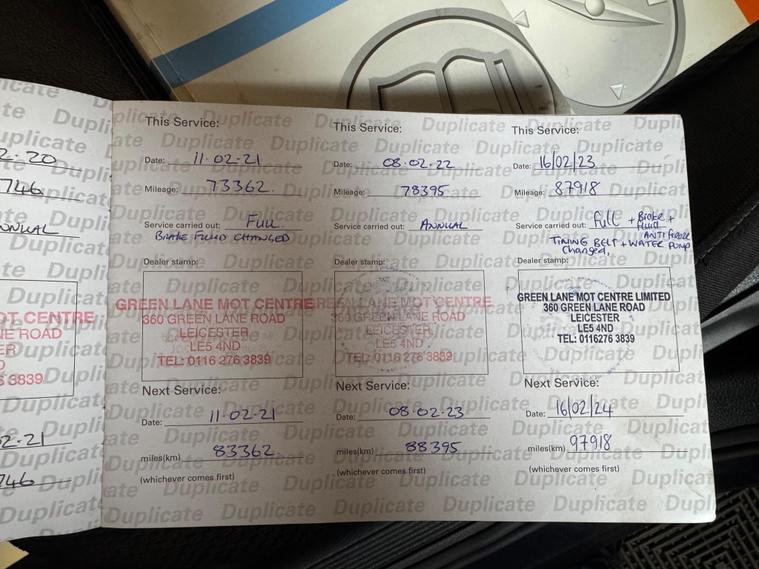 2.20
746
ANNUAL
OT.CENTRE
NE ROAD
ER
D
6 3839
02.21
746
This Service:
Date: 11.02.21
Mileage: 73362
Service carried out: FULL
BRAKE FLUID CHANGED
Dealer stamp:
GREEN LANE MOT CENTRE
360 GREEN LANE ROAD
LEICESTER
LE5 4ND
TEL: 0116 276 3839
Next Service:
Date: 11.02.21
miles(km) 83362
(whichever comes first)
This Service:
Date: 08.02.22
Mileage: 78395
Service carried out: ANNUAL
Dealer stamp:
REEN LANE MOT CENTRE
360 GREEN LANE ROAD
LEICESTER
LE5 4ND
TEL: 0116 276 3839
Next Service:
Date: 08.02.23
miles(km) 88395
(whichever comes first)
This Service:
Date: 16/02/23
Mileage: 87918
Service carried out: Full + Brake +
Fluid
ANTI FREEZE
TIMING BELT + WATER PUMP
Changed,
Dealer stamp:
GREEN LANE MOT CENTRE LIMITED
360 GREEN LANE ROAD
LEICESTER
LE5 4ND
TEL: 0116276 3839
Next Service:
Date: 16/02/24
miles(km) 97918
(whichever comes first)
Duplicate